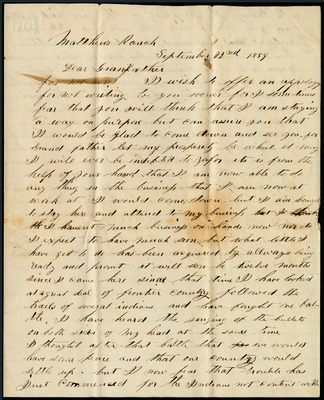 Matthews Ranch
September 22nd 1859
Dear Grandfather
I wish to offer an appology
for not writing to you sooner for I some times
fear that you will think that I am staying
a way on purpose but I can assure you that
I would be glad to come down and see you, for
Grand father let my prosperity be what it may
I will ever be indebted to you for it is from the
help of your hand that I am now able to do
any thing in the business that I am now at
work at I would come down but I am bound
to stay here and attend to my business
I havent much business on hands now nor do
I expect to have much soon but what little I
have got to do has been acquired by allways being
ready and at will soon be twelve months
since I came here since that time I have looked
at a great deal of frontier country followed the
trails of several indians and have fought one bat-
tle, I have heard the singing of the bullets
on both sides of my head at the same time
I thought after that battle that we would
have some peace and that our country would
settle up. but I now fear that trouble has
just commenced for the Indians not content with